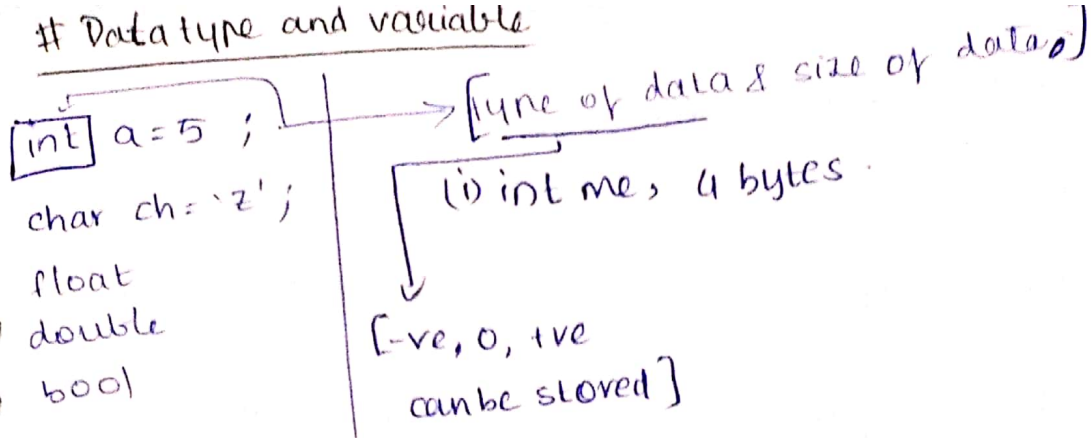 # Data type and variable
int a = 5 ;
char ch = 'z' ;
float
double
bool
[Type of data & size of data.]
(i) int me, 4 bytes.
[-ve, 0, +ve
can be stored]